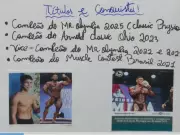 Títulos e Conquistas:
• Campeão do MR. Olympia 2025 (Classic Physique
• Campeão do Arnold Classic Ohio 2023
• Vice-Campeão do MR. Olympia 2022 e 202
• Campeão do Muscle Contest Brasil 2021